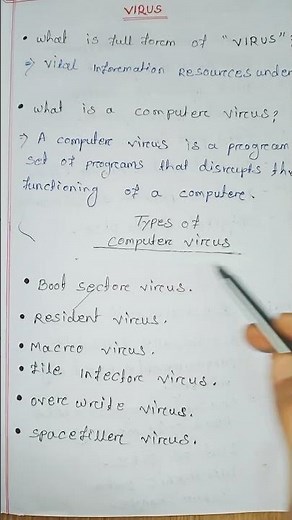 VIRUS
• What is full form of "VIRUS"?
⇒ Vital Information Resources under
• What is a computer virus?
⇒ A computer virus is a program
set of programs that disrupts the
functioning of a computer.
Types of
computer virus
• Boot sectore virus.
• Resident virus.
• Macro virus.
• File Infector virus.
• over write virus.
• spacefiller virus.